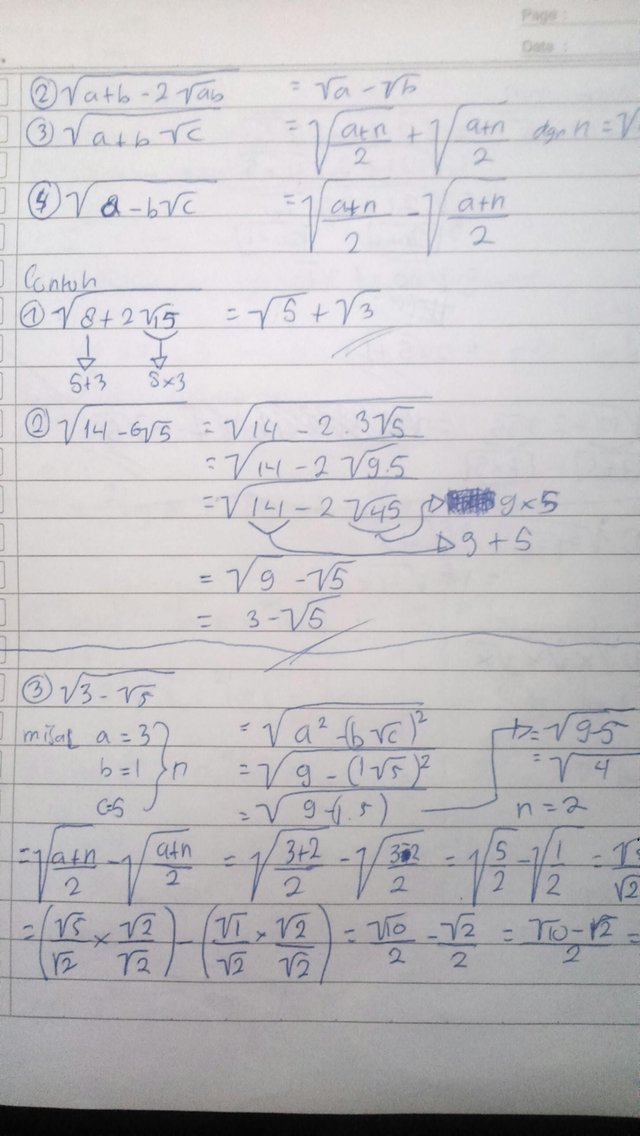 Page :
Date :
② √(a+b-2√ab) = √a - √b
③ √(a+b√c) = √((a+n)/2) + √((a+n)/2) dgn n = √
④ √(a-b√c) = √((a+n)/2) - √((a+n)/2)
Contoh
① √(8+2√15) = √5 + √3
5+3 5×3
② √(14-6√5) = √(14 - 2.3√5)
= √(14-2√9.5)
= √(14-2√45) 9×5
9+5
= √9 - √5
= 3-√5
③ √(3-√5)
misal a = 3 = √(a² -(b√c)²) = √(9-5)
b = 1 n = √(9-(1√5)²) = √4
c=5 = √(9-1.5) n = 2
= √((a+n)/2) - √((a+n)/2) = √((3+2)/2) - √((3-2)/2) = √(5/2) - √(1/2) =
= (√5/√2 × √2/√2) - (√1/√2 × √2/√2) = √10/2 - √2/2 = (√10-√2)/2 =